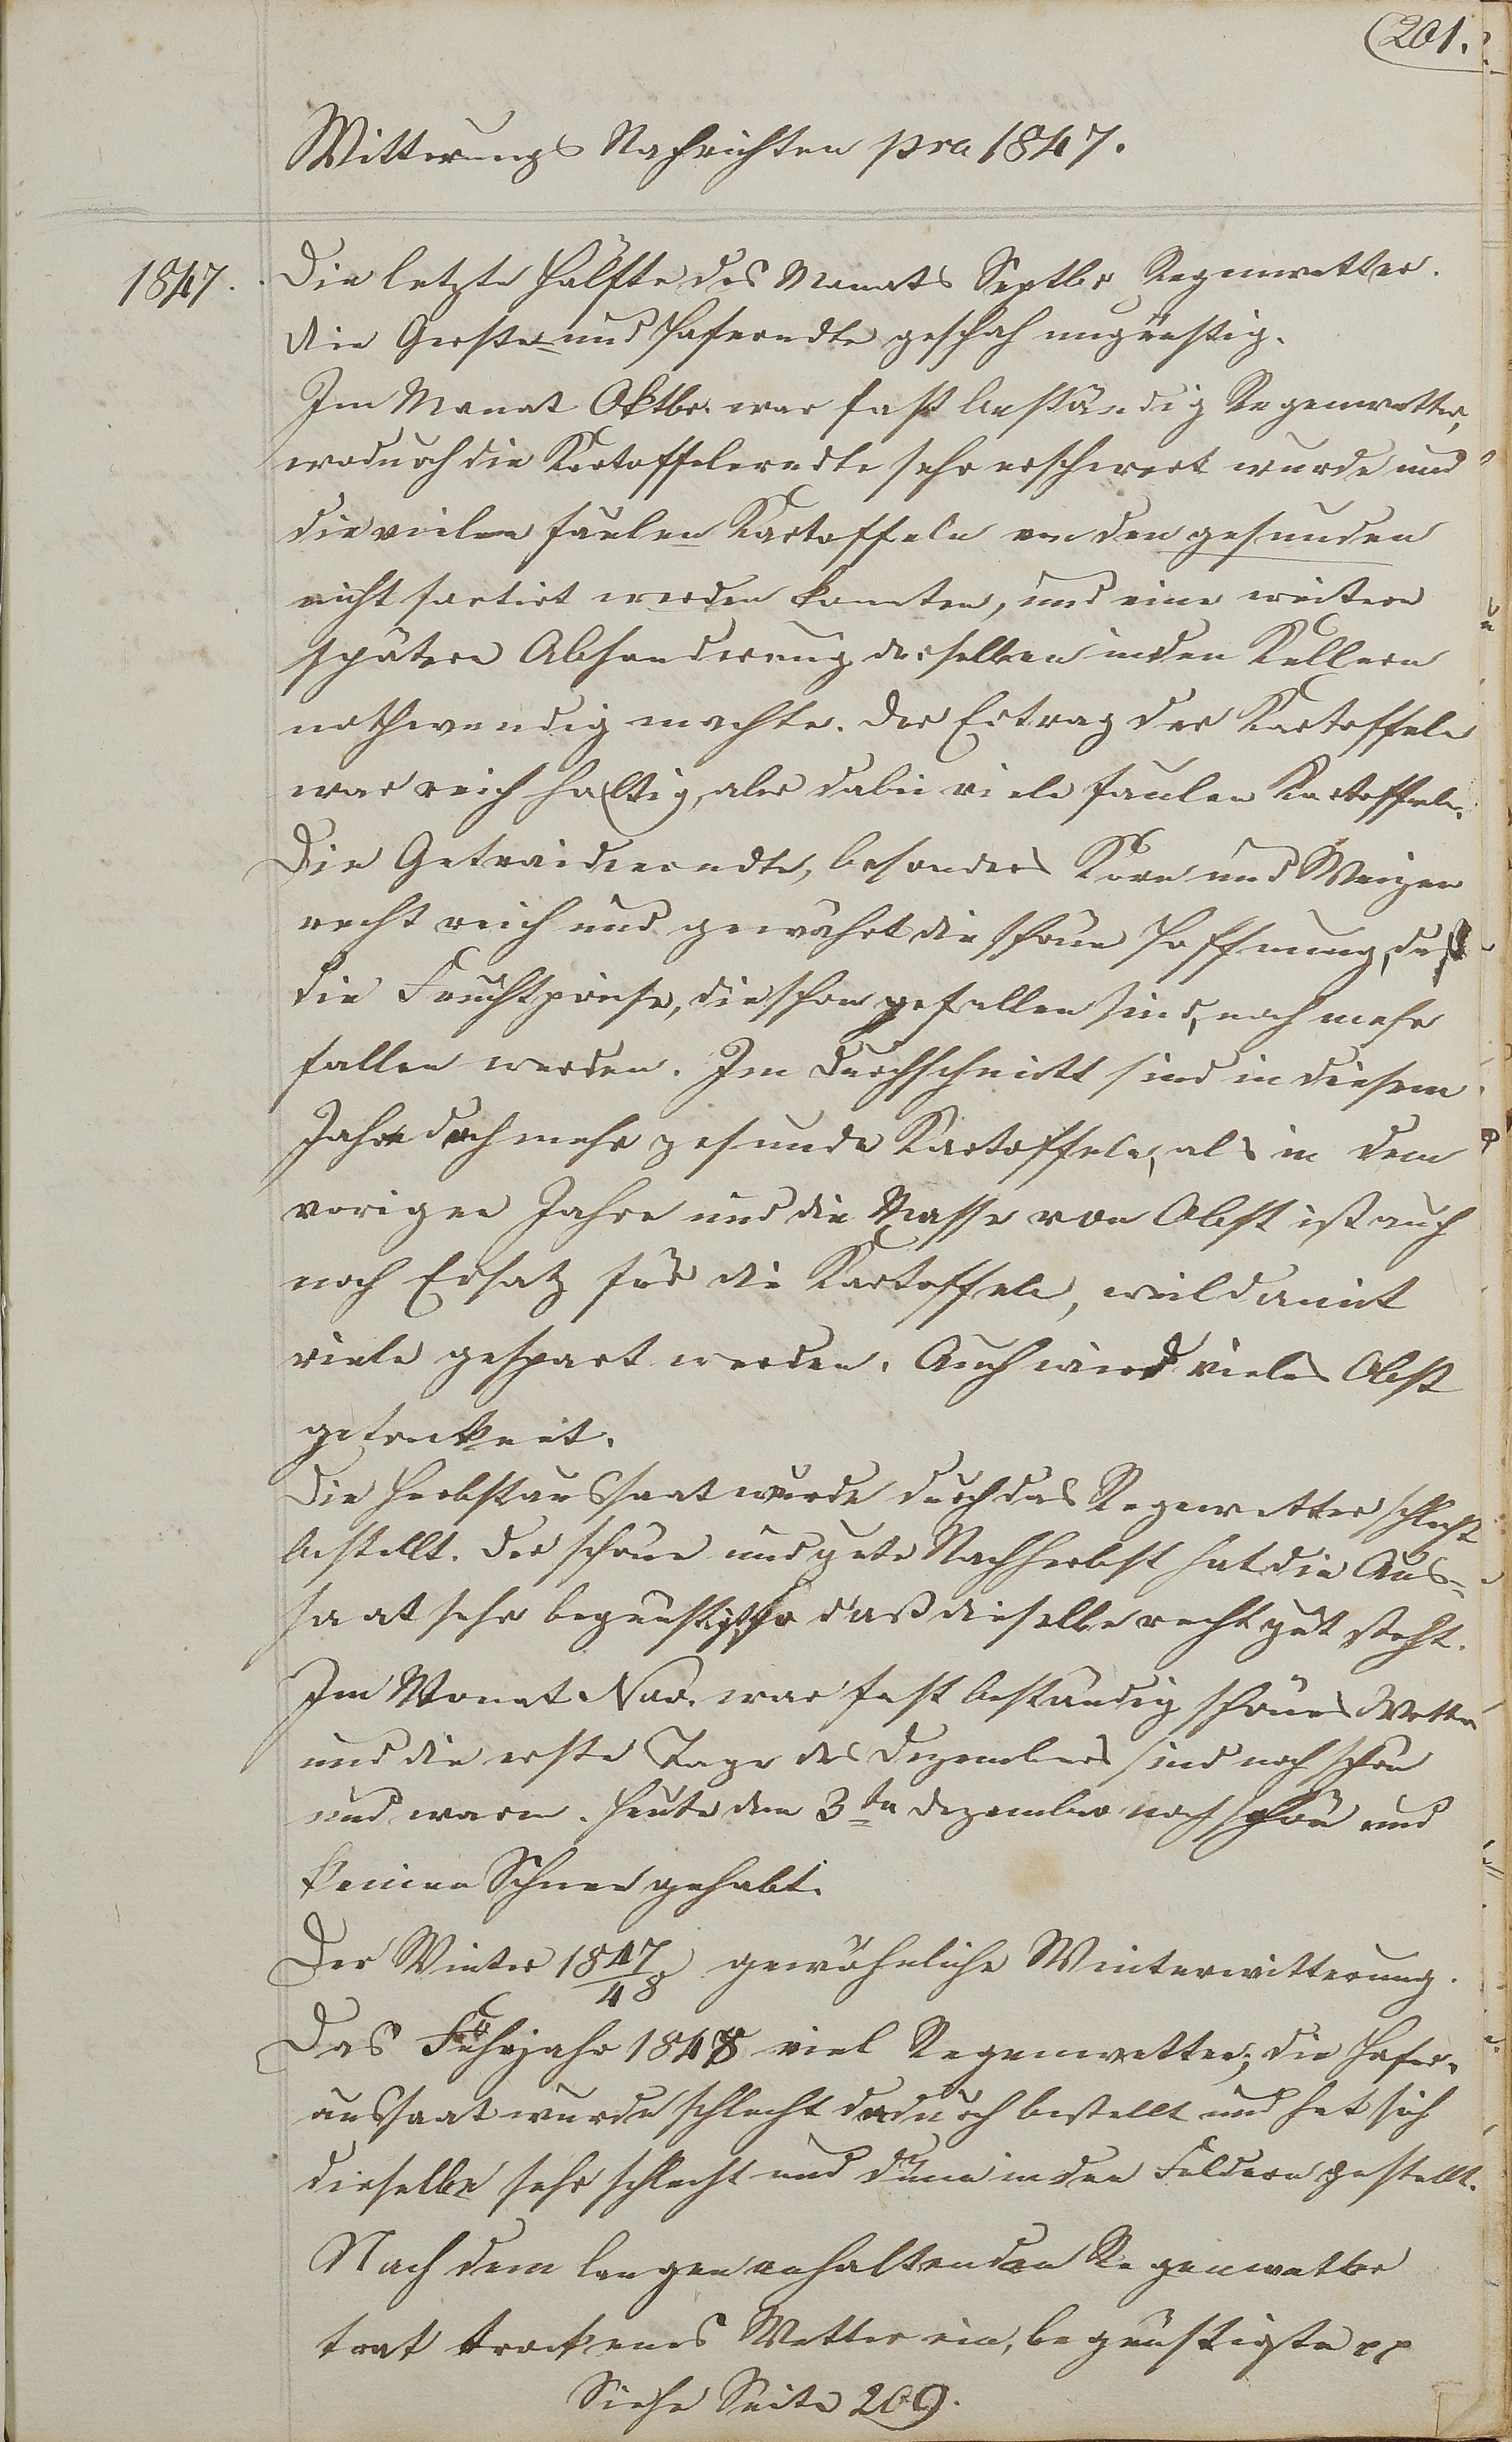 201.
Witterungs Nachrichten pro 1847.
1847. Die letzte Hälfte des Monats Septbr Regenwetter.
die Gerste- und Haferndte geschah ungünstig.
Im Monat Oktbr. war fast beständig Regenwetter,
wodurch die Kartoffelerndte sehr erschwert wurde und
die vielen faulen Kartoffeln von den gesunden
nicht sortirt werden konnten, und eine weitere
spätere Absonderung derselben in den Kellern
nothwendig machte. Der Ertrag der Kartoffeln
war reichhaltig, aber dabei viele faulen Kartoffeln.
Die Getraideerndte, besonders Korn und Weizen
recht reich und gewährt die schöne Hoffnung, daß
die Fruchtpreise, die schon gefallen sind, noch mehr
fallen werden. Im Durchschnitt sind in diesem
Jahre doch mehr gesunde Kartoffeln, als in dem
vorigen Jahre und die Masse von Obst ist auch
noch Ersatz für die Kartoffeln, weil damit
viele gespart werden. Auch wird vieles Obst
getrocknet.
Die Herbstaussaat wurde durch das Regenwetter schlecht
bestellt. Der schöne und gute Nachherbst hat die Aus-
saat sehr begünstigt, so daß dieselbe recht gut steht.
Im Monat Nov. war fast beständig schönes Wetter
und die erste Tage des Dezembers sind noch schön
und warm. Heute den 3ten Dezember noch schön und
keinen Schnee gehabt.
Der Winter 1847/48 gewöhnliche Winterwitterung.
Das Frühjahr 1848 viel Regenwetter; die Hafer-
aussaat wurde schlecht dadurch bestellt und hat sich
dieselbe sehr schlecht und dünn in den Feldern gestellt.
Nach dem langen anhaltenden Regenwetter
trat trockenes Wetter ein, begünstigte pp
Siehe Seite 209.